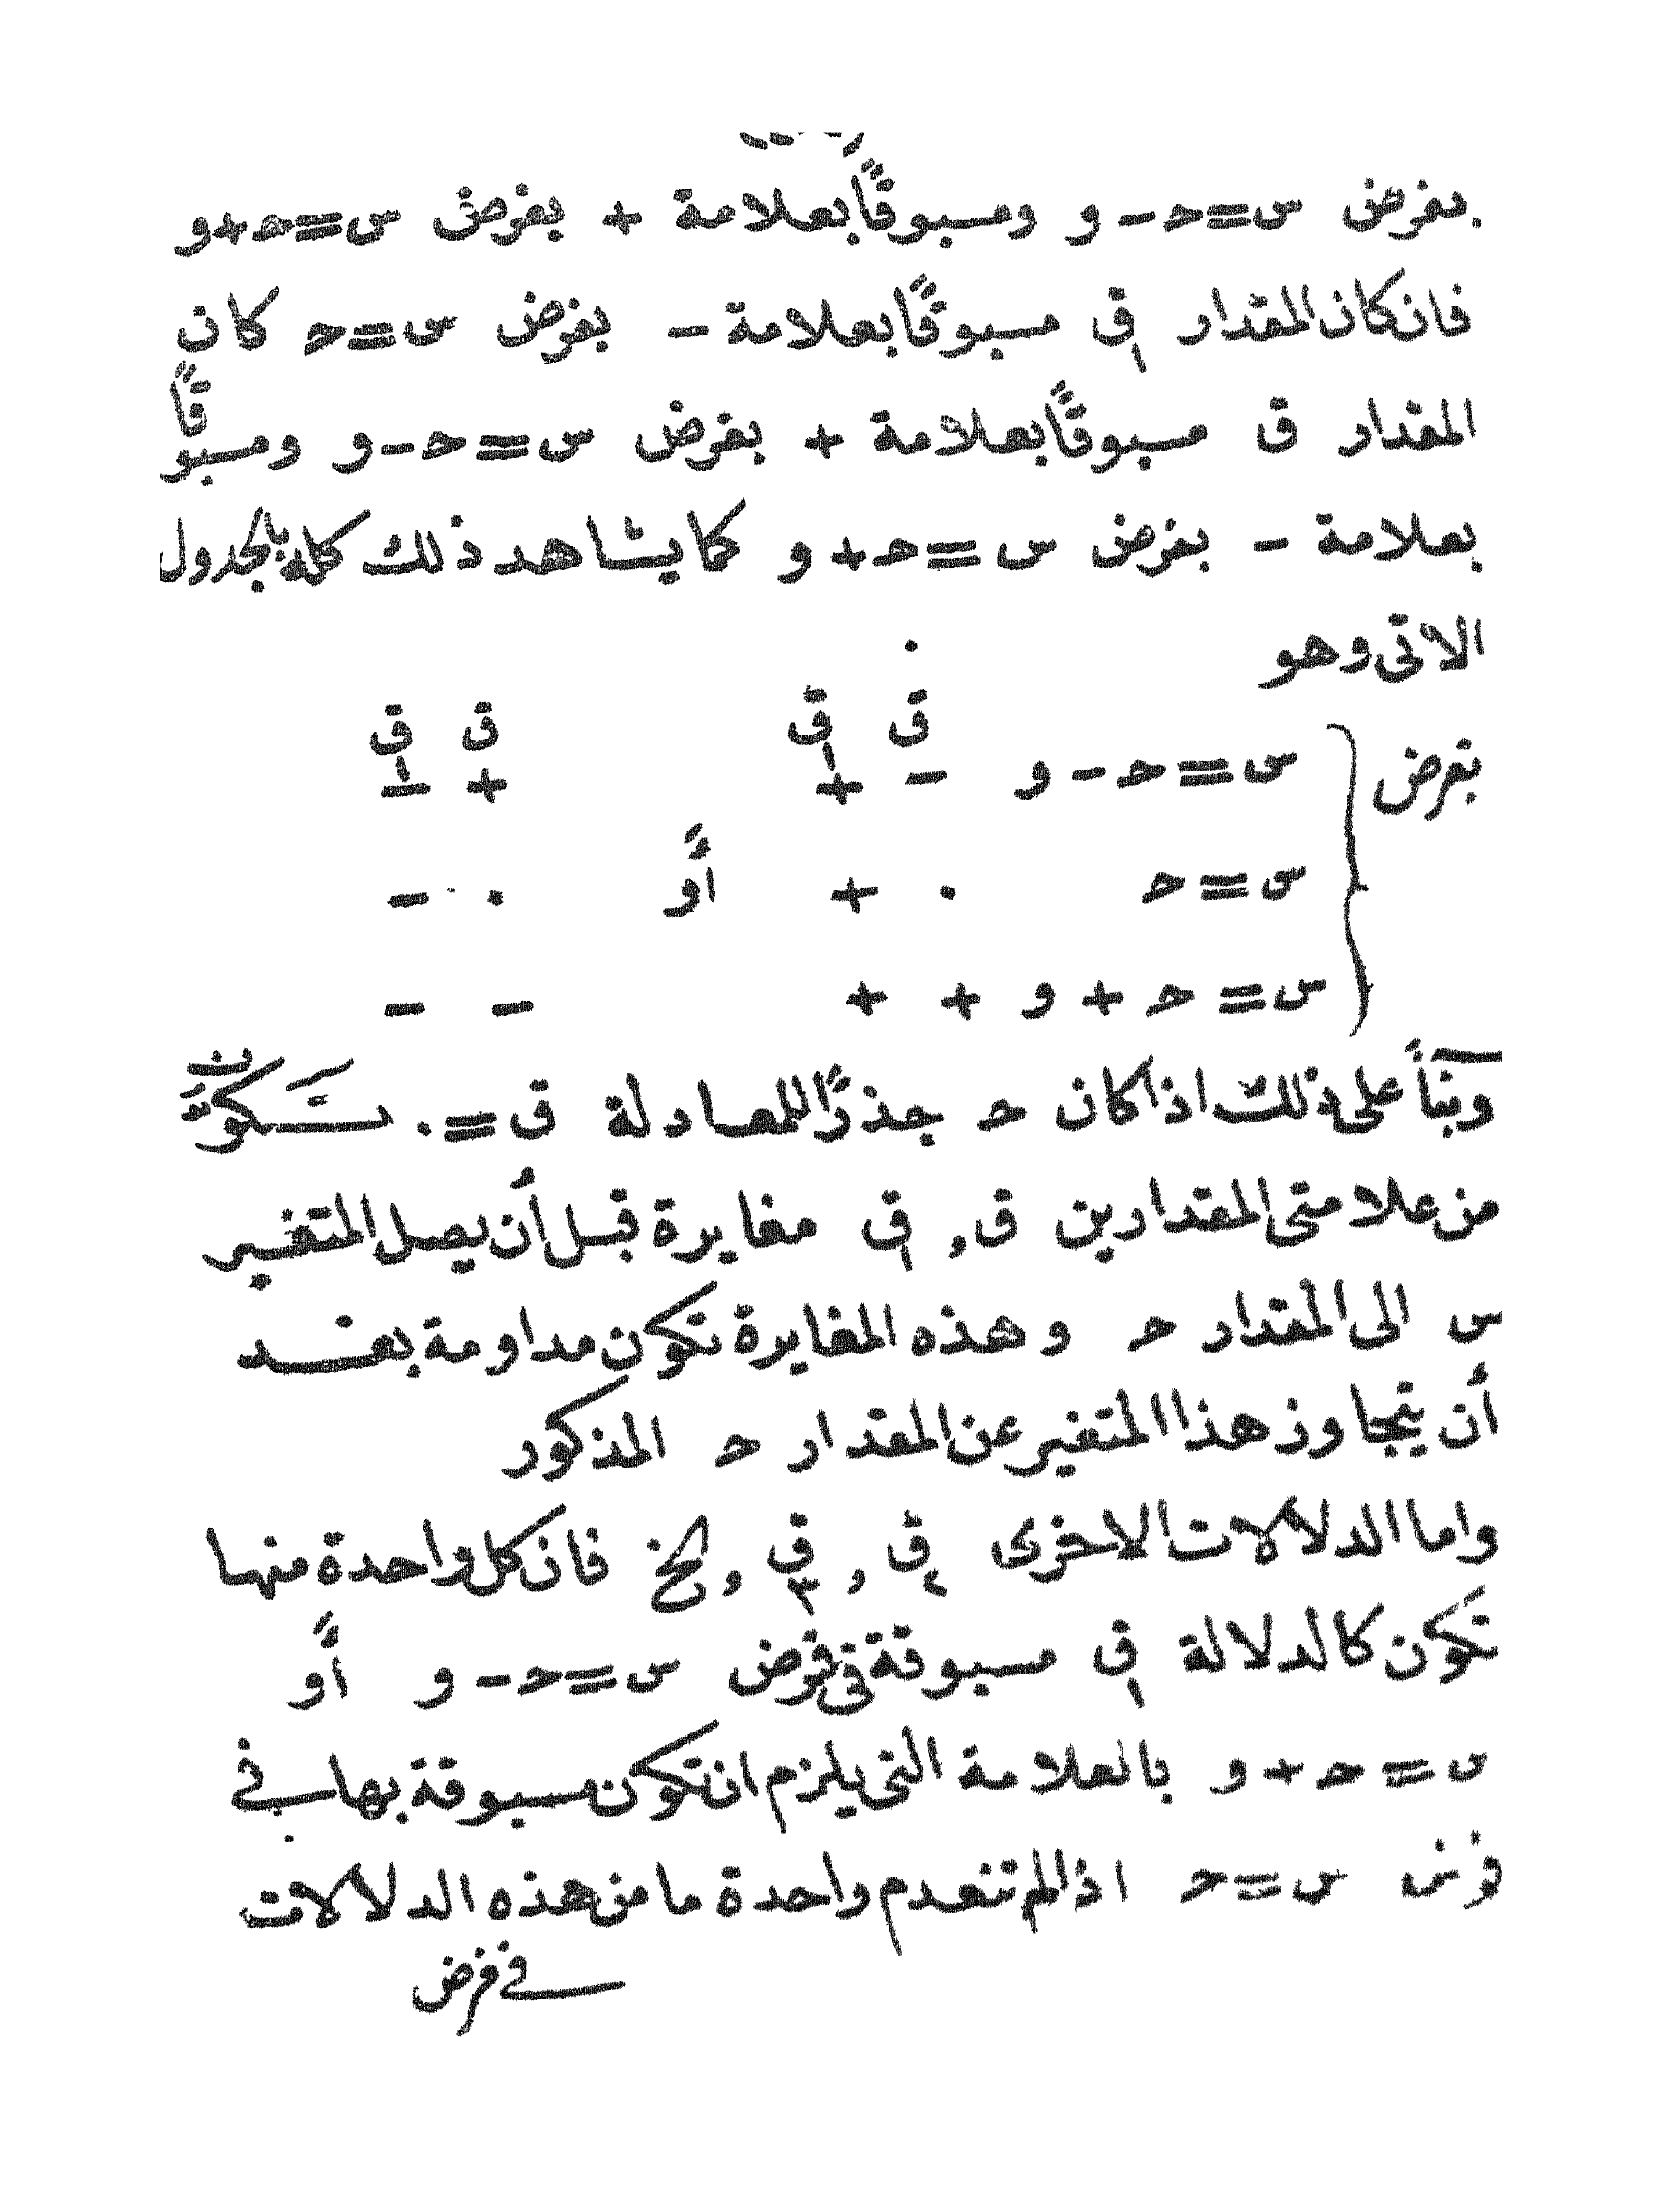 بفرض س=حـ-و ومسبوقًا بعلامة + بفرض س=حـ+و
فان كان المقدار ق١ مسبوقًا بعلامة - بفرض س=حـ كان
المقدار ق مسبوقًا بعلامة + بفرض س=حـ-و ومسبوقًا
بعلامة - بفرض س=حـ+و كما يشاهد ذلك كله بالجدول
الاتى وهو
ق ق١ ق ق١
بفرض س=حـ-و - + + -
س=حـ ٠ + أو ٠ -
س=حـ+و + + - -
وبنآً على ذلك اذا كان حـ جذرًا للمعادلة ق=٠ تكون
من علامتى المقدارين ق , ق١ مغايرة قبل أن يصل المتغير
س الى المقدار حـ وهذه المغايرة تكون مداومة بعد
أن يتجاوز هذا المتغير عن المقدار حـ المذكور
واما الدلالات الاخرى ق٢ , ق٣ , الخ فان كل واحدة منها
تكون كالدلالة ق١ مسبوقة فى فرض س=حـ-و أو
س=حـ+و بالعلامة التى يلزم ان تكون مسبوقة بها فى
فرض س=حـ اذا لم تنعدم واحدة ما من هذه الدلالات
فى فرض